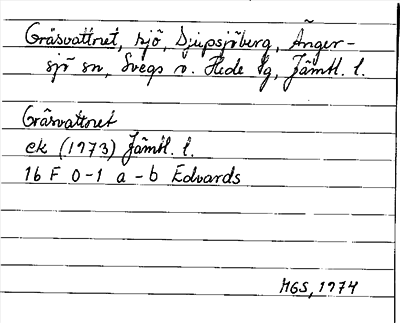 Gräsvattnet, sjö, Djupsjöberg, Änger-
sjö sn, Svegs o. Hede tg, Jämtl. l.
Gräsvattnet
ek (1973) Jämtl. l.
16 F 0-1 a-b Edvards
MGS, 1974